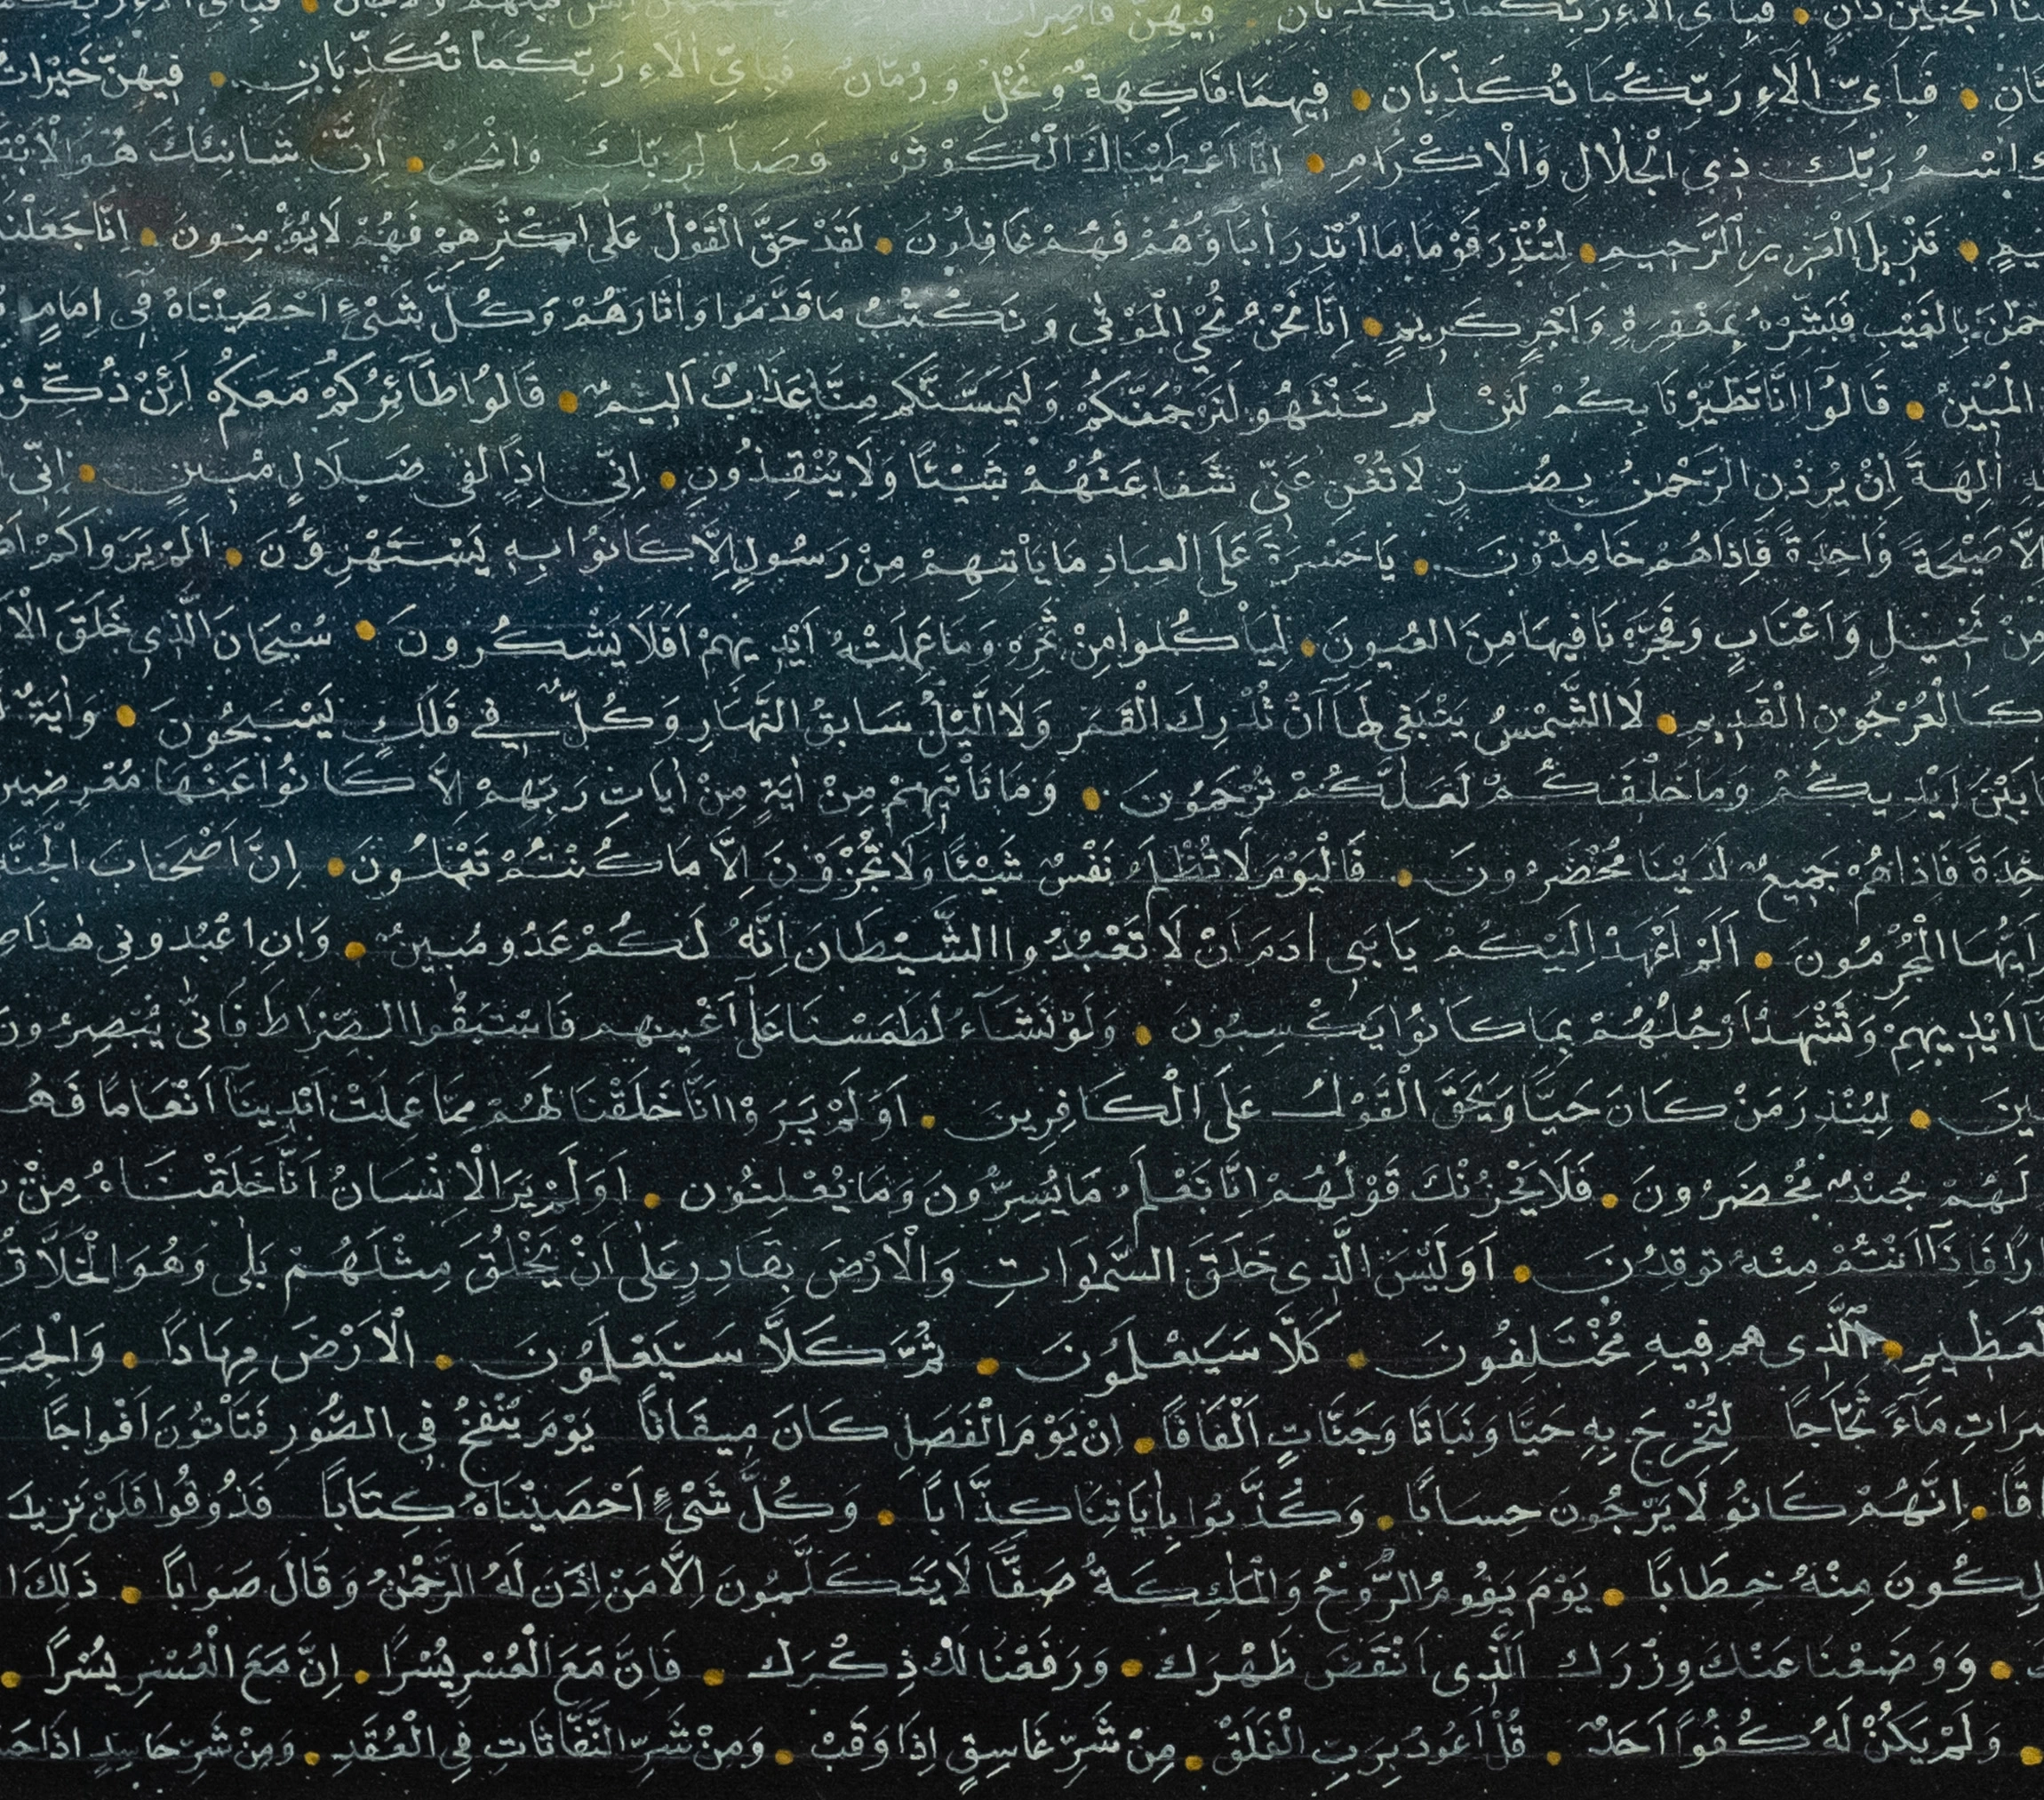 فَبِاَىِّ اٰلَاءِ رَبِّكُمَا تُكَذِّبَانِ فِيهِنَّ قَاصِرَاتُ
فَبِاَىِّ اٰلَاءِ رَبِّكُمَا تُكَذِّبَانِ فِيهِمَا فَاكِهَةٌ وَنَخْلٌ وَرُمَّانٌ فَبِاَىِّ اٰلَاءِ رَبِّكُمَا تُكَذِّبَانِ فِيهِنَّ خَيْرَاتٌ
اسْمُ رَبِّكَ ذِى الْجَلَالِ وَالْاِكْرَامِ اِنَّا اَعْطَيْنَاكَ الْكَوْثَرَ فَصَلِّ لِرَبِّكَ وَانْحَرْ اِنَّ شَانِئَكَ هُوَ الْاَبْتَ
تَنْزِيلَ الْعَزِيزِ الرَّحِيمِ لِتُنْذِرَ قَوْمًا مَا اُنْذِرَ اٰبَاؤُهُمْ فَهُمْ غَافِلُونَ لَقَدْ حَقَّ الْقَوْلُ عَلٰى اَكْثَرِهِمْ فَهُمْ لَا يُؤْمِنُونَ اِنَّا جَعَلْنَا
بِالْغَيْبِ فَبَشِّرْهُ بِمَغْفِرَةٍ وَاَجْرٍ كَرِيمٍ اِنَّا نَحْنُ نُحْيِ الْمَوْتٰى وَنَكْتُبُ مَا قَدَّمُوا وَاٰثَارَهُمْ وَكُلَّ شَىْءٍ اَحْصَيْنَاهُ فِى اِمَامٍ
الْمُبِينُ قَالُوا اِنَّا تَطَيَّرْنَا بِكُمْ لَئِنْ لَمْ تَنْتَهُوا لَنَرْجُمَنَّكُمْ وَلَيَمَسَّنَّكُمْ مِنَّا عَذَابٌ اَلِيمٌ قَالُوا طَائِرُكُمْ مَعَكُمْ اَئِنْ ذُكِّرْ
اٰلِهَةً اِنْ يُرِدْنِ الرَّحْمٰنُ بِضُرٍّ لَا تُغْنِ عَنِّى شَفَاعَتُهُمْ شَيْئًا وَلَا يُنْقِذُونِ اِنِّى اِذًا لَفِى ضَلَالٍ مُبِينٍ اِنِّى
صَيْحَةً وَاحِدَةً فَاِذَا هُمْ خَامِدُونَ يَا حَسْرَةً عَلَى الْعِبَادِ مَا يَاْتِيهِمْ مِنْ رَسُولٍ اِلَّا كَانُوا بِهِ يَسْتَهْزِؤُنَ اَلَمْ يَرَوْا كَمْ
نَخِيلٍ وَاَعْنَابٍ وَفَجَّرْنَا فِيهَا مِنَ الْعُيُونِ لِيَاْكُلُوا مِنْ ثَمَرِهِ وَمَا عَمِلَتْهُ اَيْدِيهِمْ اَفَلَا يَشْكُرُونَ سُبْحَانَ الَّذِى خَلَقَ
كَالْعُرْجُونِ الْقَدِيمِ لَا الشَّمْسُ يَنْبَغِى لَهَا اَنْ تُدْرِكَ الْقَمَرَ وَلَا الَّيْلُ سَابِقُ النَّهَارِ وَكُلٌّ فِى فَلَكٍ يَسْبَحُونَ وَاٰيَةٌ
بَيْنَ اَيْدِيكُمْ وَمَا خَلْفَكُمْ لَعَلَّكُمْ تُرْحَمُونَ وَمَا تَاْتِيهِمْ مِنْ اٰيَةٍ مِنْ اٰيَاتِ رَبِّهِمْ اِلَّا كَانُوا عَنْهَا مُعْرِضِينَ
فَاِذَا هُمْ جَمِيعٌ لَدَيْنَا مُحْضَرُونَ فَالْيَوْمَ لَا تُظْلَمُ نَفْسٌ شَيْئًا وَلَا تُجْزَوْنَ اِلَّا مَا كُنْتُمْ تَعْمَلُونَ اِنَّ اَصْحَابَ الْجَنَّةِ
اَيُّهَا الْمُجْرِمُونَ اَلَمْ اَعْهَدْ اِلَيْكُمْ يَا بَنِى اٰدَمَ اَنْ لَا تَعْبُدُوا الشَّيْطَانَ اِنَّهُ لَكُمْ عَدُوٌّ مُبِينٌ وَاَنِ اعْبُدُونِى هٰذَا
اَيْدِيهِمْ وَتَشْهَدُ اَرْجُلُهُمْ بِمَا كَانُوا يَكْسِبُونَ وَلَوْ نَشَاءُ لَطَمَسْنَا عَلٰى اَعْيُنِهِمْ فَاسْتَبَقُوا الصِّرَاطَ فَاَنّٰى يُبْصِرُونَ
لِيُنْذِرَ مَنْ كَانَ حَيًّا وَيَحِقَّ الْقَوْلُ عَلَى الْكَافِرِينَ اَوَلَمْ يَرَوْا اَنَّا خَلَقْنَا لَهُمْ مِمَّا عَمِلَتْ اَيْدِينَا اَنْعَامًا فَهُمْ
لَهُمْ جُنْدٌ مُحْضَرُونَ فَلَا يَحْزُنْكَ قَوْلُهُمْ اِنَّا نَعْلَمُ مَا يُسِرُّونَ وَمَا يُعْلِنُونَ اَوَلَمْ يَرَ الْاِنْسَانُ اَنَّا خَلَقْنَاهُ مِنْ
فَاِذَا اَنْتُمْ مِنْهُ تُوقِدُنَ اَوَلَيْسَ الَّذِى خَلَقَ السَّمٰوَاتِ وَالْاَرْضَ بِقَادِرٍ عَلٰى اَنْ يَخْلُقَ مِثْلَهُمْ بَلٰى وَهُوَ الْخَلَّاقُ
الْعَظِيمِ اَلَّذِى هُمْ فِيهِ مُخْتَلِفُونَ كَلَّا سَيَعْلَمُونَ ثُمَّ كَلَّا سَيَعْلَمُونَ الْاَرْضَ مِهَادًا وَالْجِبَ
مَاءً ثَجَّاجًا لِنُخْرِجَ بِهِ حَبًّا وَنَبَاتًا وَجَنَّاتٍ اَلْفَافًا اِنَّ يَوْمَ الْفَصْلِ كَانَ مِيقَاتًا يَوْمَ يُنْفَخُ فِى الصُّورِ فَتَاْتُونَ اَفْوَاجًا
اِنَّهُمْ كَانُوا لَا يَرْجُونَ حِسَابًا وَكَذَّبُوا بِاٰيَاتِنَا كِذَّابًا وَكُلَّ شَىْءٍ اَحْصَيْنَاهُ كِتَابًا فَذُوقُوا فَلَنْ نَزِيدَ
مِنْهُ خِطَابًا يَوْمَ يَقُومُ الرُّوحُ وَالْمَلٰئِكَةُ صَفًّا لَا يَتَكَلَّمُونَ اِلَّا مَنْ اَذِنَ لَهُ الرَّحْمٰنُ وَقَالَ صَوَابًا ذٰلِكَ
وَوَضَعْنَا عَنْكَ وِزْرَكَ اَلَّذِى اَنْقَضَ ظَهْرَكَ وَرَفَعْنَا لَكَ ذِكْرَكَ فَاِنَّ مَعَ الْعُسْرِ يُسْرًا اِنَّ مَعَ الْعُسْرِ يُسْرًا
وَلَمْ يَكُنْ لَهُ كُفُوًا اَحَدٌ قُلْ اَعُوذُ بِرَبِّ الْفَلَقِ مِنْ شَرِّ غَاسِقٍ اِذَا وَقَبَ وَمِنْ شَرِّ النَّفَّاثَاتِ فِى الْعُقَدِ وَمِنْ شَرِّ حَاسِدٍ اِذَا